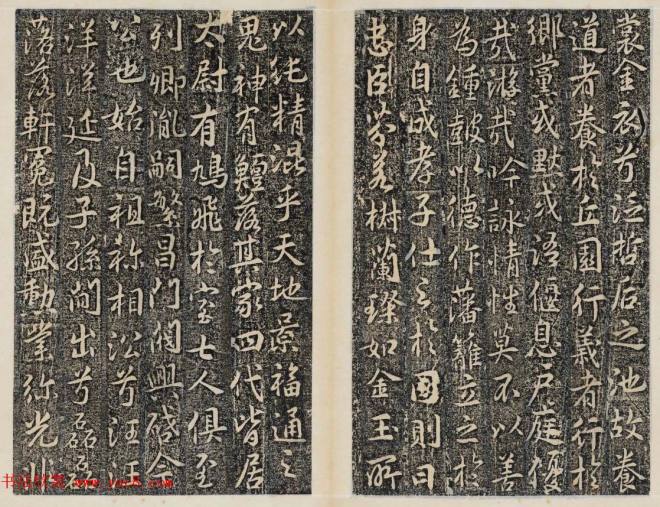 裳金衣兮泛哲后之池故養
道者養於丘園行義者行於
鄉黨或默或語偃息戶庭優
哉游哉吟詠情性莫不以善
為鍾鼓以德作藩籬立之於
身自成孝子仕之於國則曰
忠臣芬若樹蘭璨如金玉所
以純精混乎天地景福通之
鬼神有鱣落其家四代皆居
太尉有鳩飛於室七人俱至
列卿胤嗣繁昌門閥興啟令
公也始自祖称相沿兮汪汪
洋洋延及子孫間出兮磊磊
落落軒冕既盛勳業弥光